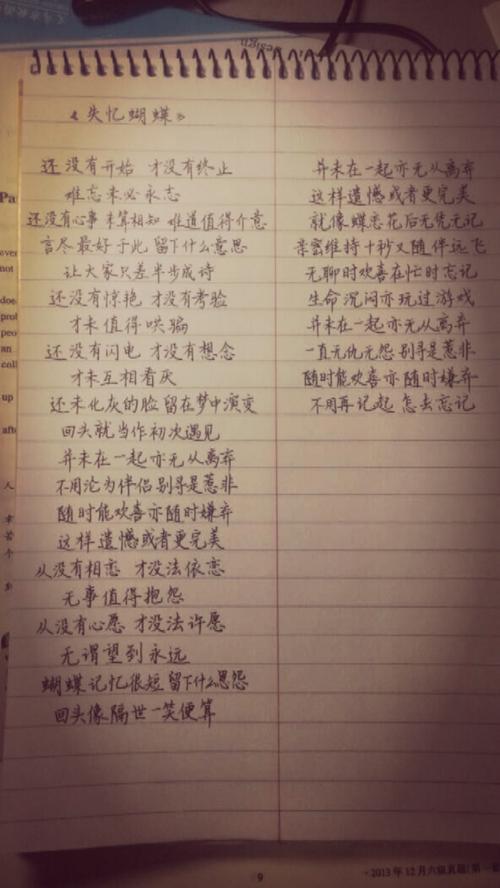 《失忆蝴蝶》
还没有开始 才没有终止
难忘未必永志
还没有心事 未算相知 难道值得介意
言尽最好于此 留下什么意思
让大家只差半步成诗
还没有惊艳 才没有考验
才未值得哄骗
还没有闪电 才没有想念
才未互相看厌
还未化灰的脸 留在梦中演变
回头就当作初次遇见
并未在一起亦无从离弃
不用沦为伴侣别寻是惹非
随时能欢喜亦随时嫌弃
这样遗憾或者更完美
从没有相恋 才没法依恋
无事值得抱怨
从没有心愿 才没法许愿
无谓望到永远
蝴蝶记忆很短 留下什么恩怨
回头像隔世一笑便算
并未在一起亦无从离弃
这样遗憾或者更完美
就像蝶恋花后无凭无记
亲密维持十秒又随伴远飞
无聊时欢喜在忙时忘记
生命沉闷亦玩过游戏
并未在一起亦无从离弃
一直无仇无怨别寻是惹非
随时能欢喜亦随时嫌弃
不用再记起 怎去忘记
Pa
ever
not
doe
prof
peo
an
coll
up
afte
9
·2013年12月六级真题(第一